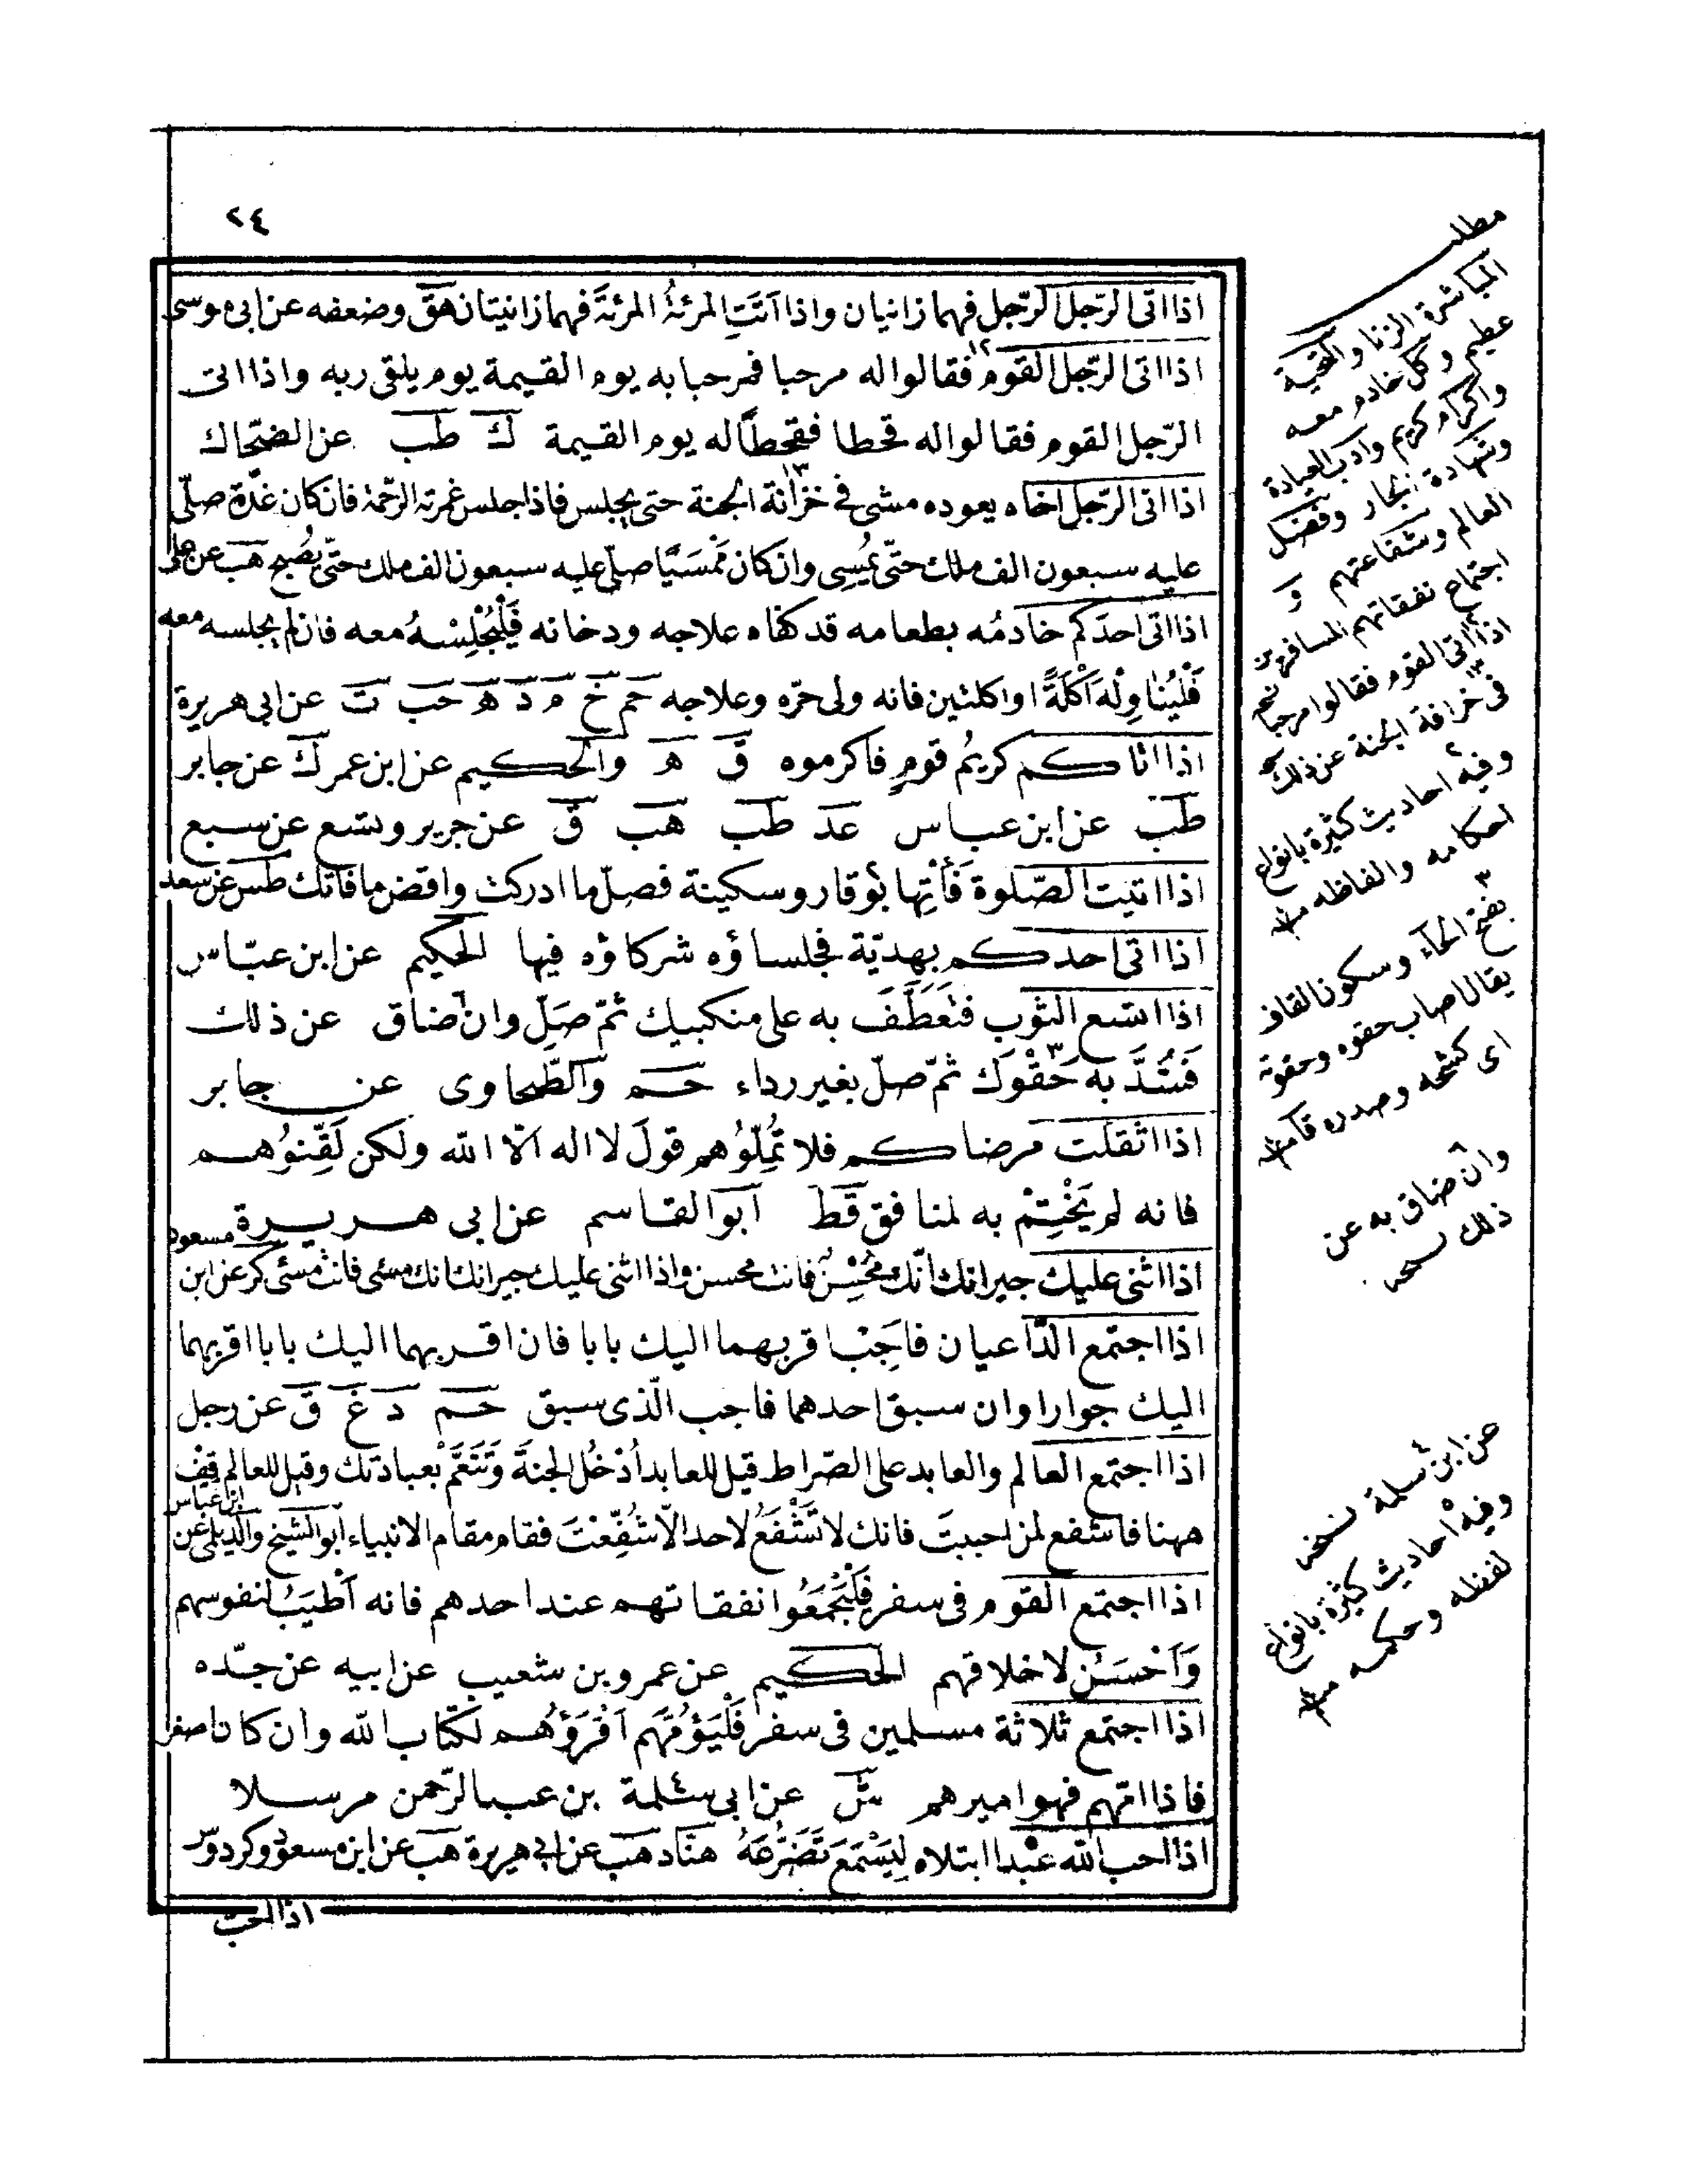 ٢٤
اذا اتى الرّجل الرّجل فهما زانيان واذا اَتَتِ المرئةُ المرئةَ فهما زانيتان هق وضعفه عن ابى موسى
اذا اتى الرّجل القوم فقالوا له مرحبا فمرحبا به يوم القيمة يوم يلقى ربه واذا اتى
الرّجل القوم فقالوا له قحطا فقحطًا له يوم القيمة ك طب عن الضحّاك
اذا اتى الرّجل اخاه يعوده مشى في خزانة الجنة حتى يجلس فاذا جلس غمرته الرّحمة فان كان غدّة صلّى
عليه سبعون الف ملك حتّى يُمْسِى وان كان مَمْسَيًا صلّى عليه سبعون الف ملك حتّى يُصْبِح هب عن على
اذا اتى احدَكم خادمُه بطعامه قد كفاه علاجه ودخانه فَلْيُجْلِسْهُ معه فان لم يجلسه معه
فَلْيُنَاوِلْه اُكْلَةً او اكلتين فانه ولى حرّه وعلاجه حم خ م د ه حب ت عن ابى هريرة
اذا اتاكم كريمُ قومٍ فاكرموه ق ه والحكيم عن ابن عمر ك عن جابر
طب عن ابن عباس عد طب هب ق عن جرير وتسع عن سبع
اذا اتيت الصّلوة فَأْتِها بوقار وسكينة فصلّ ما ادركت واقض ما فاتك طس عن سعد
اذا اتى احدكم بهديّة فجلساؤه شركاؤه فيها الحكيم عن ابن عبّاس
اذا اتسع الثوب فتَعَطَّفَ به على منكبيك ثمّ صَلّ وان ضاق عن ذلك
فَشُدَّ به حَقْوَك ثمّ صلّ بغير رداء حم والطّحاوى عن جابر
اذا اثقلت مرضاكم فلا تُمِلّوُهم قولَ لا اله الّا الله ولكن لَقِّنوُهم
فانه لم يَخْتِمْ به لمنافق قَطّ ابو القاسم عن ابى هريرة
اذا اثنى عليك جيرانك انّك مُحْسِنٌ فانت محسن واذا اثنى عليك جيرانك انك مسئى فانت مسئى كر عن ابن مسعود
اذا اجتمع الدّاعيان فاَجِبْ اقربهما اليك بابا فان اقربهما اليك بابا اقربهما
اليك جوارا وان سبق احدهما فاجب الّذى سبق حم د غ ق عن رجل
اذا اجتمع العالم والعابد على الصّراط قيل للعابد اُدْخُل الجنةَ وَتَنَعَّمْ بعبادتك وقيل للعالم قِفْ
ههنا فاشفع لمن احببتَ فانك لا تَشْفَعُ لاحد الّا شُفِّعْتَ فقام مقام الانبياء ابو الشيخ والديلمى عن ابن عباس
اذا اجتمع القوم فى سفر فَلْيَجْمَعُوا نفقاتهم عند احدهم فانه اَطْيَبُ لنفوسهم
وَاَحْسَنُ لاخلاقهم الحكيم عن عمرو بن شعيب عن ابيه عن جدّه
اذا اجتمع ثلاثة مسلمين فى سفر فَلْيَؤُمَّهم اَقْرَؤُهم لكتاب الله وان كان اصغر
فاذا امّهم فهو اميرهم ش عن ابى سلمة بن عبد الرّحمن مرسلا
اذا احب الله عبدا ابتلاه لِيَسْمَعَ تَضَرُّعَهُ هنّاد هب عن ابى هريرة هب عن ابن مسعود وكردوس
اذا احب
مطلب
المباشرة الزنا والتحية
عظيم وكل خادم معه
واكرام كريم وادب العيادة
وشهادة الجار وفضل
العالم وشفاعتهم و
اجتماع نفقاتهم المسافرين
اذا اتى القوم فقالوا مرحبا نسخه
فى خرافة الجنة عن ذلك
وفيه احاديث كثيرة بانواع
احكامه والفاظه
بفتح الحاء وسكون القاف
يقال اصاب حقوه وحقوته
اى كشحه وصدره
وان ضاق به عن
ذلك نسخه
عن ابى سلمة نسخه
وفيه احاديث كثيرة بانواع
لفظه وحكمه